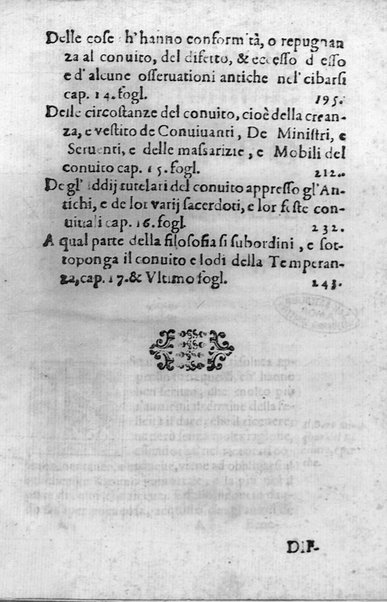 Delle cose ch'hanno conformità, o repugnan
za al conuito, del difetto, & eccesso d'esso
e d'alcune osseruationi antiche nel' cibarsi
cap. 14. fogl. 195.
Delle circostanze del conuito, cioè della crean-
za, e vestito de Conuiuanti, De Ministri, e
Seruenti, e delle massarizie, e Mobili del
conuito cap. 15. fogl. 212.
De gl' Iddij tutelari del conuito appresso gl'An-
tichi, e de lor varij sacerdoti, e lor feste con-
uiuali cap. 16. fogl. 232.
A qual parte della filosofia si subordini, e sot-
toponga il conuito e lodi della Temperan-
za, cap. 17. & Vltimo fogl. 243.
DiF-